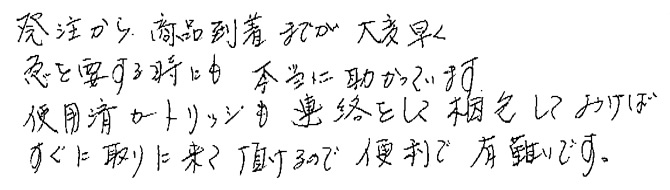 発注から商品到着までが大変早く
急を要する時にも本当に助かっています
使用済カートリッジも連絡をして梱包しておけば
すぐに取りに来て頂けるので便利で有難いです。